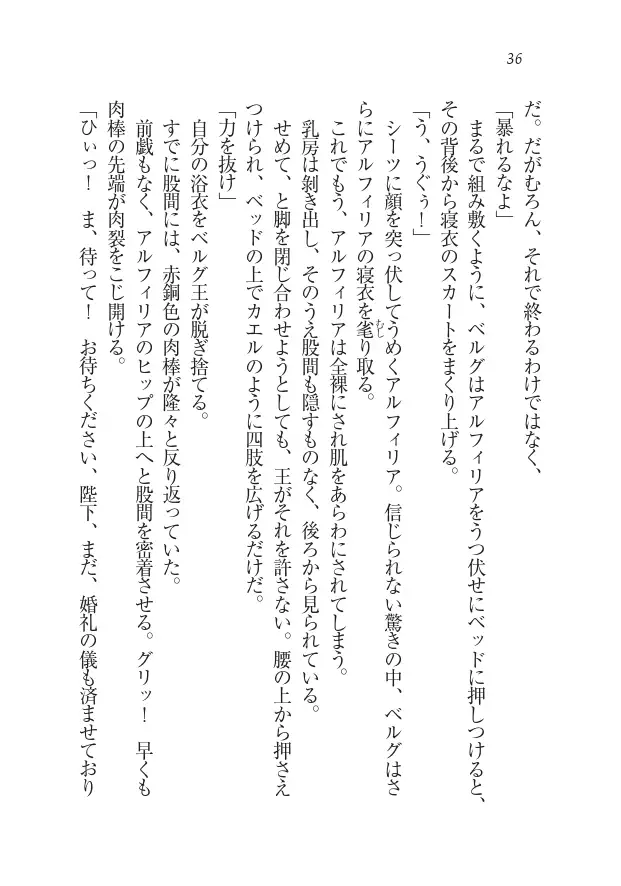 36
だ。だがむろん、それで終わるわけではなく、
「暴れるなよ」
まるで組み敷くように、ベルグはアルフィリアをうつ伏せにベッドに押しつけると、
その背後から寝衣のスカートをまくり上げる。
「う、うぐぅ！」
シーツに顔を突っ伏してうめくアルフィリア。信じられない驚きの中、ベルグはさ
らにアルフィリアの寝衣を毟り取る。
これでもう、アルフィリアは全裸にされ肌をあらわにされてしまう。
乳房は剝き出し、そのうえ股間も隠すものなく、後ろから見られている。
せめて、と脚を閉じ合わせようとしても、王がそれを許さない。腰の上から押さえ
つけられ、ベッドの上でカエルのように四肢を広げるだけだ。
「力を抜け」
自分の浴衣をベルグ王が脱ぎ捨てる。
すでに股間には、赤銅色の肉棒が隆々と反り返っていた。
前戯もなく、アルフィリアのヒップの上へと股間を密着させる。グリッ！　早くも
肉棒の先端が肉裂をこじ開ける。
「ひぃっ！　ま、待って！　お待ちください、陛下、まだ、婚礼の儀も済ませており